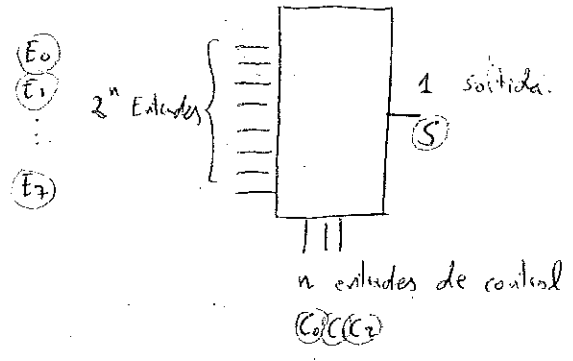 E0
E1
⋮
E7
2^n Entrades
1 sortida.
S
n entrades de control
C0 C1 C2